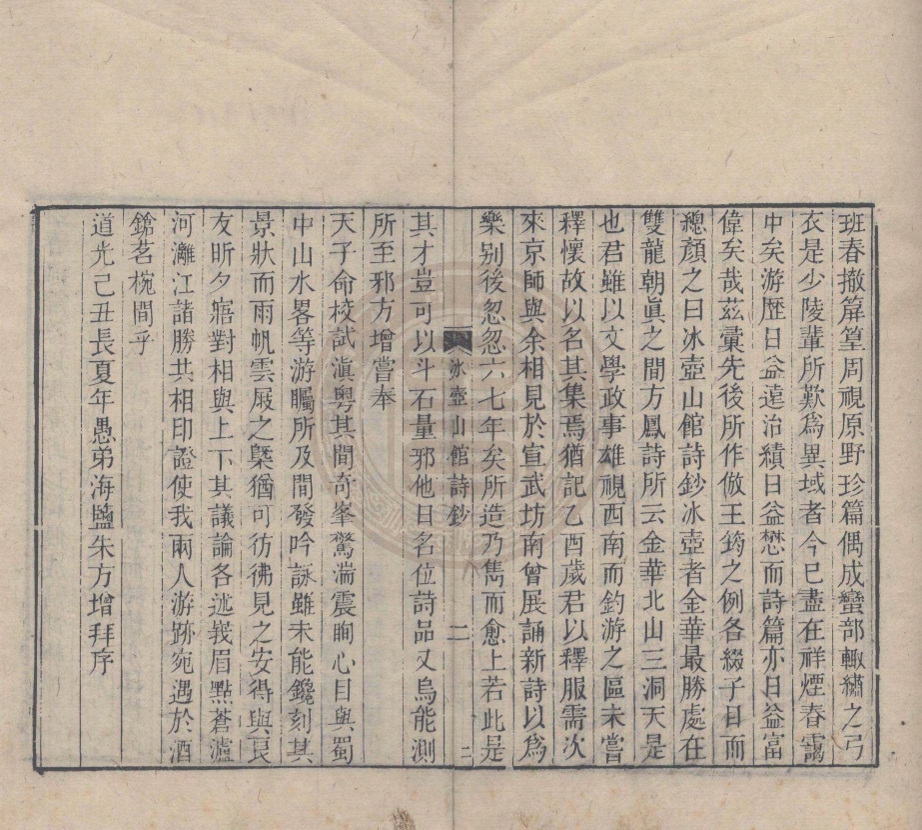 班春撤篚篁周視原野珍篇偶成蠻部輙繡之弓
衣是少陵輩所歎爲異域者今已盡在祥煙春靄
中矣游歷日益遠治績日益懋而詩篇亦日益富
偉矣哉茲彙先後所作倣王筠之例各綴子目而
總顏之曰冰壺山館詩鈔冰壺者金華最勝處在
雙龍朝眞之間方鳳詩所云金華北山三洞天是
也君雖以文學政事雄視西南而釣游之區未嘗
釋懷故以名其集焉猶記乙酉歲君以釋服需次
來京師與余相見於宣武坊南曾展誦新詩以爲
樂别後忽忽六七年矣所造乃雋而愈上若此是
冰壺山館詩鈔 二 二
其才豈可以斗石量邪他日名位詩品又烏能測
所至邪方增嘗奉
天子命校試滇粤其間奇峯驚湍震眴心目與蜀
中山水畧等游矚所及間發吟詠雖未能鑱刻其
景狀而雨帆雲屐之槩猶可彷彿見之安得與良
友昕夕寤對相與上下其議論各述峩眉點蒼瀘
河灕江諸勝共相印證使我兩人游跡宛遇於酒
鎗茗椀間乎
道光己丑長夏年愚弟海鹽朱方增拜序